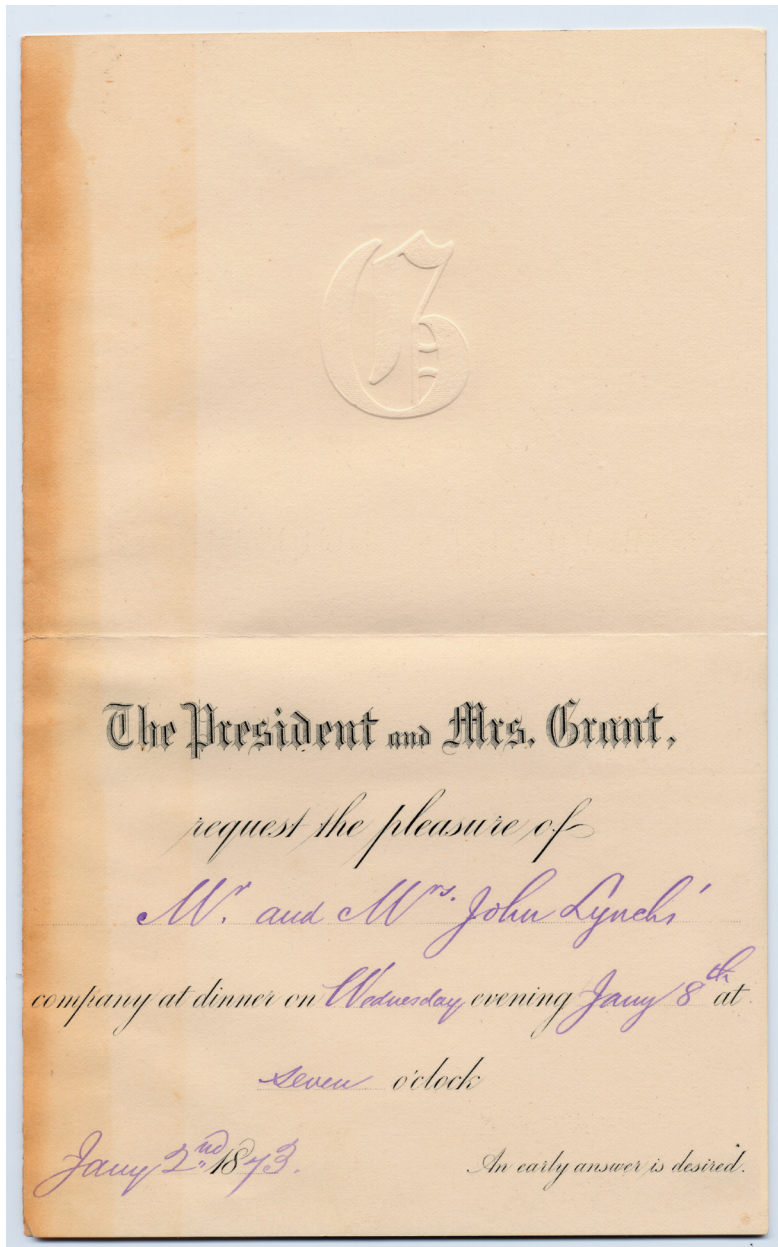 G
The President and Mrs. Grant,
request the pleasure of
Mr. and Mrs. John Lynchs'
company at dinner on Wednesday evening Jany 8th at
seven o'clock
Jany 2nd 1873. An early answer is desired.